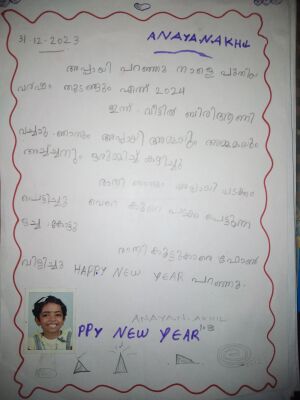 31-12-2023
ANAYA.N.AKHIL
അപ്പായി പറഞ്ഞു നാളെ പുതിയ
വർഷം തുടങ്ങും എന്ന് 2024
ഇന്ന് വീട്ടിൽ ബിരിയാണി
വച്ചു ഞാനും അപ്പായി അമ്മയും
അച്ഛനും ഒരുമിച്ച് കഴിച്ചു
രാത്രി ഞാനും അപ്പായി പടക്കം
പൊട്ടിച്ചു വേറെ പടക്കം പൊട്ടുന്ന
ഒച്ച കേട്ടു
രാത്രി കൂട്ടുകാരെ ഫോൺ
വിളിച്ചു HAPPY NEW YEAR പറഞ്ഞു.
ANAYA.N.AKHIL
PPY NEW YEAR 1-B